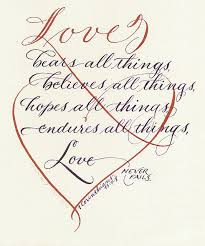 Love
bears all things,
believes all things,
hopes all things,
endures all things,
Love
NEVER
FAILS.